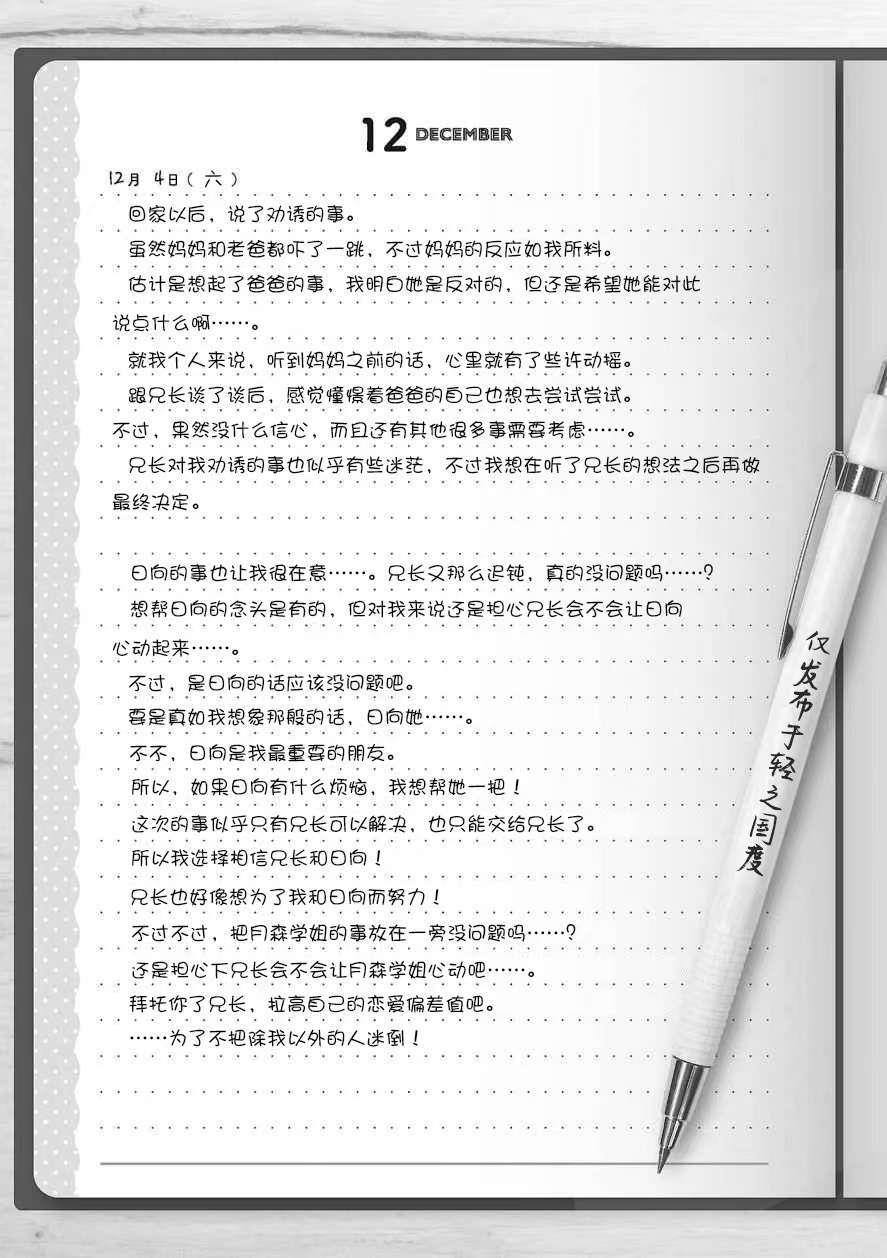 12 DECEMBER
12月 4日（ 六 ）
回家以后，说了劝诱的事。
虽然妈妈和老爸都吓了一跳，不过妈妈的反应如我所料。
估计是想起了爸爸的事，我明白她是反对的，但还是希望她能对此
说点什么啊……。
就我个人来说，听到妈妈之前的话，心里就有了些许动摇。
跟兄长谈了谈后，感觉憧憬着爸爸的自己也想去尝试尝试。
不过，果然没什么信心，而且还有其他很多事需要考虑……。
兄长对我劝诱的事也似乎有些迷茫，不过我想在听了兄长的想法之后再做
最终决定。
日向的事也让我很在意……。兄长又那么迟钝，真的没问题吗……？
想帮日向的念头是有的，但对我来说还是担心兄长会不会让日向
心动起来……。
不过，是日向的话应该没问题吧。
要是真如我想象那般的话，日向她……。
不不，日向是我最重要的朋友。
所以，如果日向有什么烦恼，我想帮她一把！
这次的事似乎只有兄长可以解决，也只能交给兄长了。
所以我选择相信兄长和日向！
兄长也好像想为了我和日向而努力！
不过不过，把月森学姐的事放在一旁没问题吗……？
还是担心下兄长会不会让月森学姐心动吧……。
拜托你了兄长，拉高自己的恋爱偏差值吧。
……为了不把除我以外的人迷倒！
仅发布于轻之国度